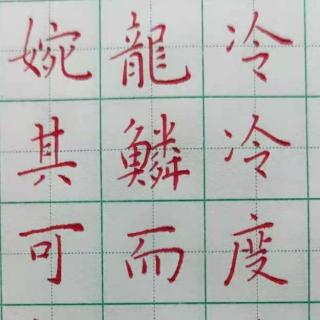 冷冷度
龍鱗而
婉其可